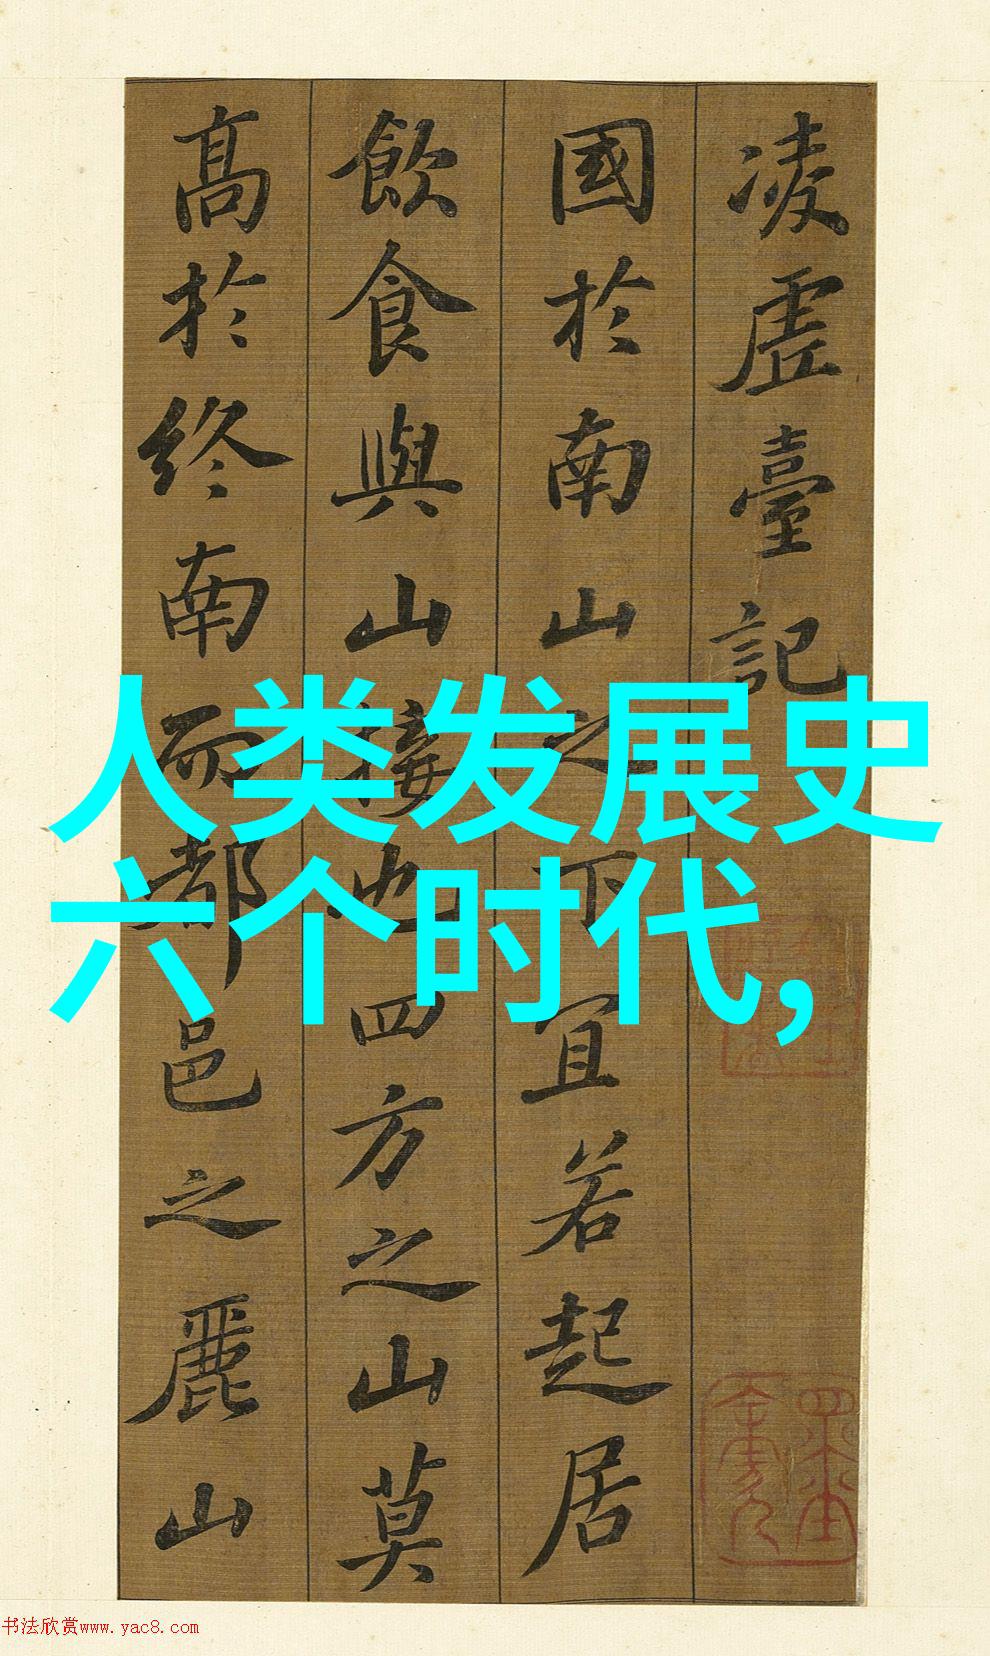 凌虚臺記
國於南山之下宜若起居
飲食與山接也四方之山莫
高於終南而都邑之麗山
人类发展史
六个时代，
书法欣赏www.yac8.com